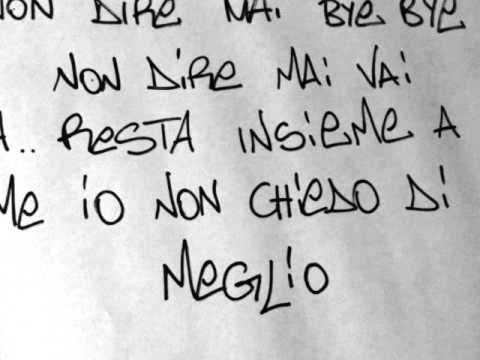 NON DIRE MAI BYE BYE
NON DIRE MAI VAI
A.. RESTA INSIEME A
ME IO NON CHIEDO DI
MEGLIO